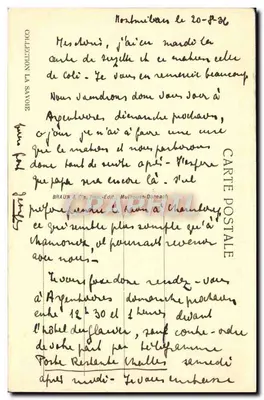 Montmélian le 20-8-36
j'ai eu mardi la
carte de Suzette et ce matin celle
de Coli. Je vous en remercie beaucoup
Nous viendrons donc vous voir à
Argentières dimanche prochain,
je n'ai à faire une cure
que le matin et nous partirons
donc tout de suite après. J'espère
que papa sera encore là. S'il
prendre le train à Chambéry
ce qui semble plus simple qu'à
Chamonix, il pourrait revenir
avec nous.
Je vous fixe donc rendez-vous
à Argentières dimanche prochain
entre 12h30 et 1 heures devant
l'hôtel du glacier, sauf contre-ordre
de votre part par télégramme
Poste Restante Challes samedi
après-midi. Je vous embrasse
bien fort
Georges
CARTE POSTALE
COLLECTION LA SAVOIE